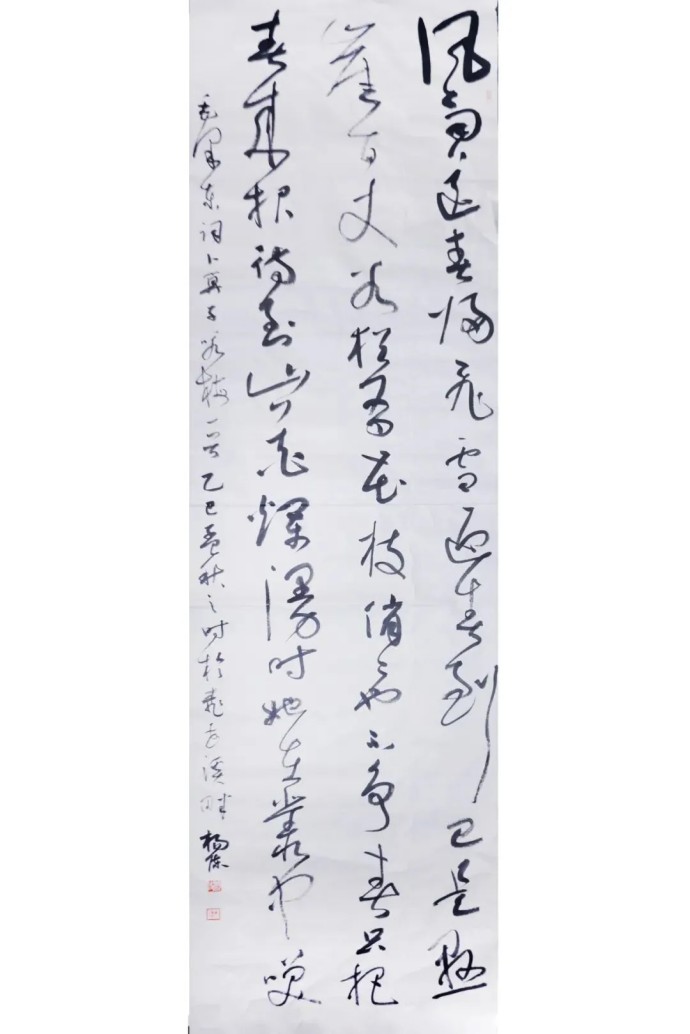 風雨送春歸飛雪迎春到已是懸
崖百丈冰猶有花枝俏々也不争春只把
春來報待到山花爛漫時她在叢中笑
毛澤東詞卜算子咏梅一首乙巳孟秋之時於溪畔楊